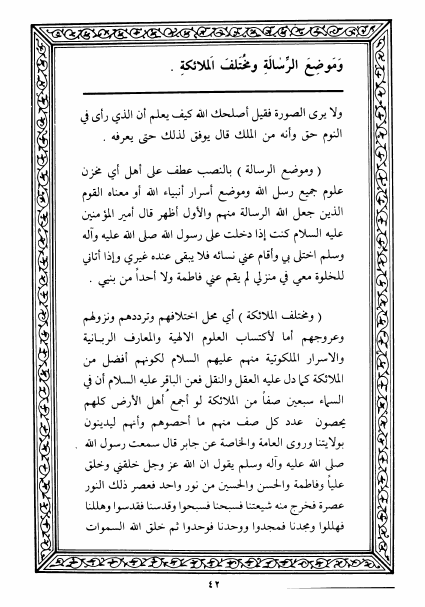 وَمَوضِعَ الرِّسَالَةِ وَمُختَلفَ اَلملائكةِ .
ولا يرى الصورة فقيل أصلحك الله كيف يعلم أن الذي رأى في
النوم حق وأنه من الملك قال يوفق لذلك حتى يعرفه .
( وموضع الرسالة ) بالنصب عطف على أهل أي مخزن
علوم جميع رسل الله وموضع أسرار أنبياء الله أو معناه القوم
الذين جعل الله الرسالة منهم والأول أظهر قال أمير المؤمنين
عليه السلام كنت إذا دخلت على رسول الله صلى الله عليه وآله
وسلم اختلى بي وأقام عني نسائه فلا يبقى عنده غيري وإذا أتاني
للخلوة معي في منزلي لم يقم عني فاطمة ولا أحداً من بنيي .
( ومختلف الملائكة ) أي محل اختلافهم وترددهم ونزولهم
وعروجهم أما لأكتساب العلوم الالهية والمعارف الربانية
والاسرار الملكوتية منهم عليهم السلام لكونهم أفضل من
الملائكة كما دل عليه العقل والنقل فعن الباقر عليه السلام أن في
السماء سبعين صفاً من الملائكة لو أجمع أهل الأرض كلهم
يحصون عدد كل صف منهم ما أحصوهم وأنهم ليدينون
بولايتنا وروى العامة والخاصة عن جابر قال سمعت رسول الله .
صلى الله عليه وآله وسلم يقول ان الله عز وجل خلقني وخلق
علياً وفاطمة والحسن والحسين من نور واحد فعصر ذلك النور
عصرة فخرج منه شيعتنا فسبحنا فسبحوا وقدسنا فقدسوا وهللنا
فهللوا ومجدنا فمجدوا ووحدنا فوحدوا ثم خلق الله السموات
٤٢